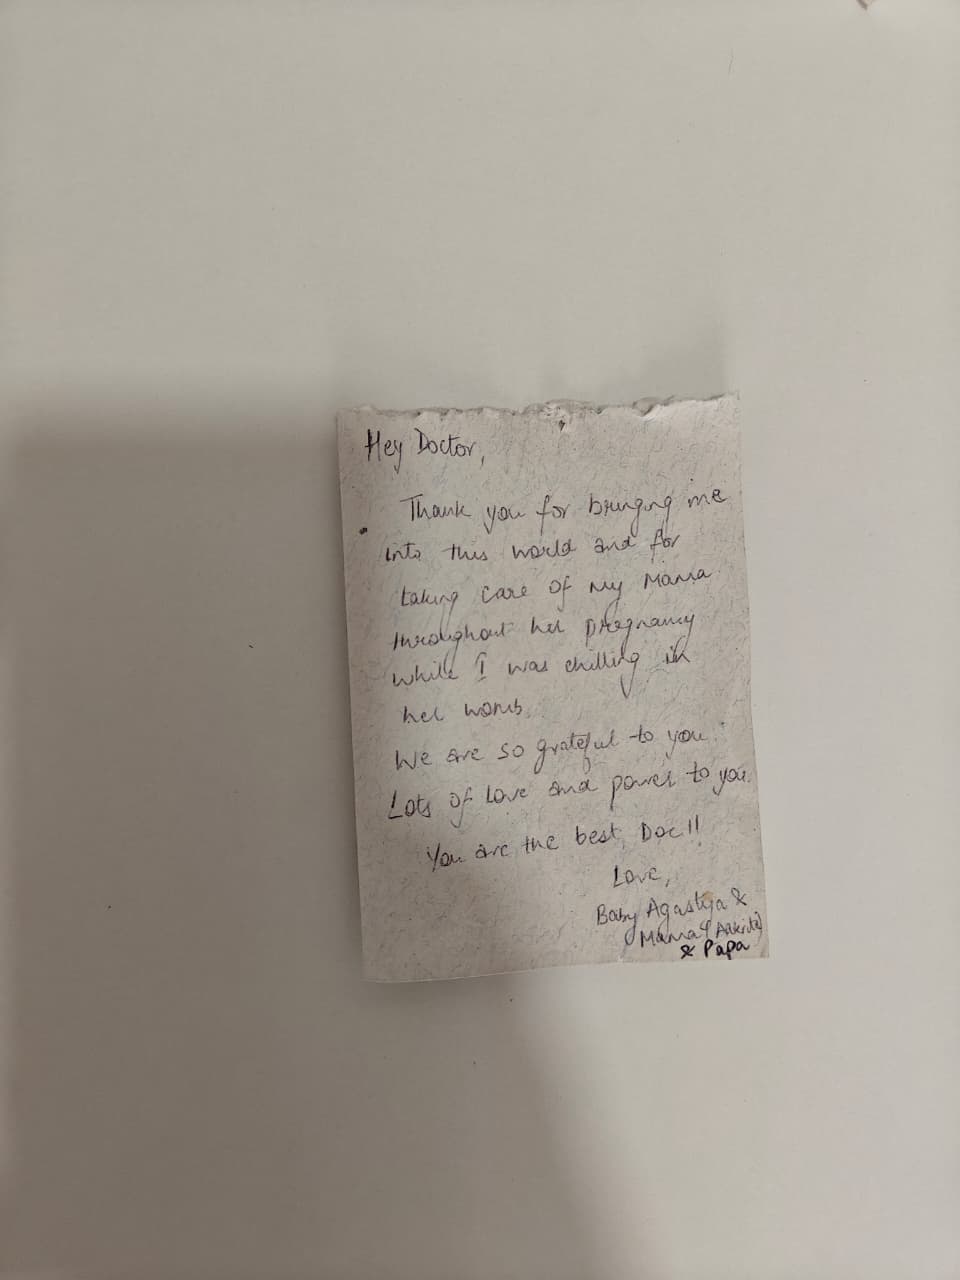 Hey Doctor,
Thank you for bringing me
into this world and for
taking care of my Mama
throughout her pregnancy
while I was chilling in
her womb.
We are so grateful to you.
Lots of love and power to you.
You are the best, Doc!!
Love,
Baby Agastya &
Mama (Aakrita)
& Papa